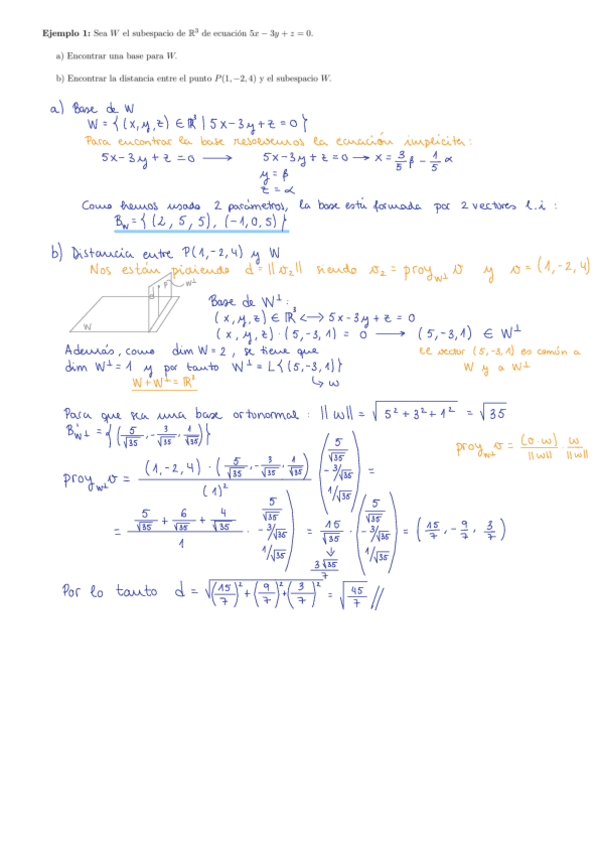 Ejemplo 1: Sea W el subespacio de ℝ³ de ecuación 5x − 3y + z = 0.
a) Encontrar una base para W.
b) Encontrar la distancia entre el punto P(1, −2, 4) y el subespacio W.
a) Base de W
W = { (x,y,z) ∈ ℝ³ | 5x−3y+z=0 }
Para encontrar la base resolvemos la ecuación implícita:
5x−3y+z=0 ⟶ 5x−3y+z=0 → x = 3/5 β − 1/5 α
y = β
z = α
Como hemos usado 2 parámetros, la base está formada por 2 vectores l.i :
B_W = { (2, 5, 5), (−1, 0, 5) }
b) Distancia entre P(1,−2,4) y W
Nos están pidiendo d = ||v₂|| siendo v₂ = proy_W⊥ v y v = (1, −2, 4)
P W⊥
W
Base de W⊥ :
(x,y,z) ∈ ℝ³ ⟷ 5x−3y+z = 0
(x,y,z) · (5,−3,1) = 0 ⟶ (5,−3,1) ∈ W⊥
Además, como dim W = 2, se tiene que
dim W⊥ = 1 y por tanto W⊥ = L{(5,−3,1)}
↳ w
W + W⊥ = ℝ³
el vector (5,−3,1) es común a
W y a W⊥
Para que sea una base ortonormal : ||w|| = √(5² + 3² + 1²) = √35
B'_W⊥ = { (5/√35, −3/√35, 1/√35) }
proy_W⊥ v = (v·w)/||w|| · w/||w||
proy_W⊥ v = (1, −2, 4) · (5/√35, −3/√35, 1/√35) / (1)² · (5/√35, −3/√35, 1/√35) =
= (5/√35 + 6/√35 + 4/√35) / 1 · (5/√35, −3/√35, 1/√35) = 15/√35 · (5/√35, −3/√35, 1/√35) = (15/7, −9/7, 3/7)
↓
3√35/7
Por lo tanto d = √((15/7)² + (9/7)² + (3/7)²) = √(45/7) //